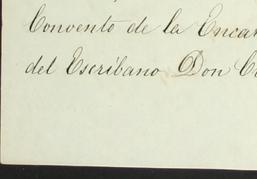 Convento de la Encar
del Escribano Don C